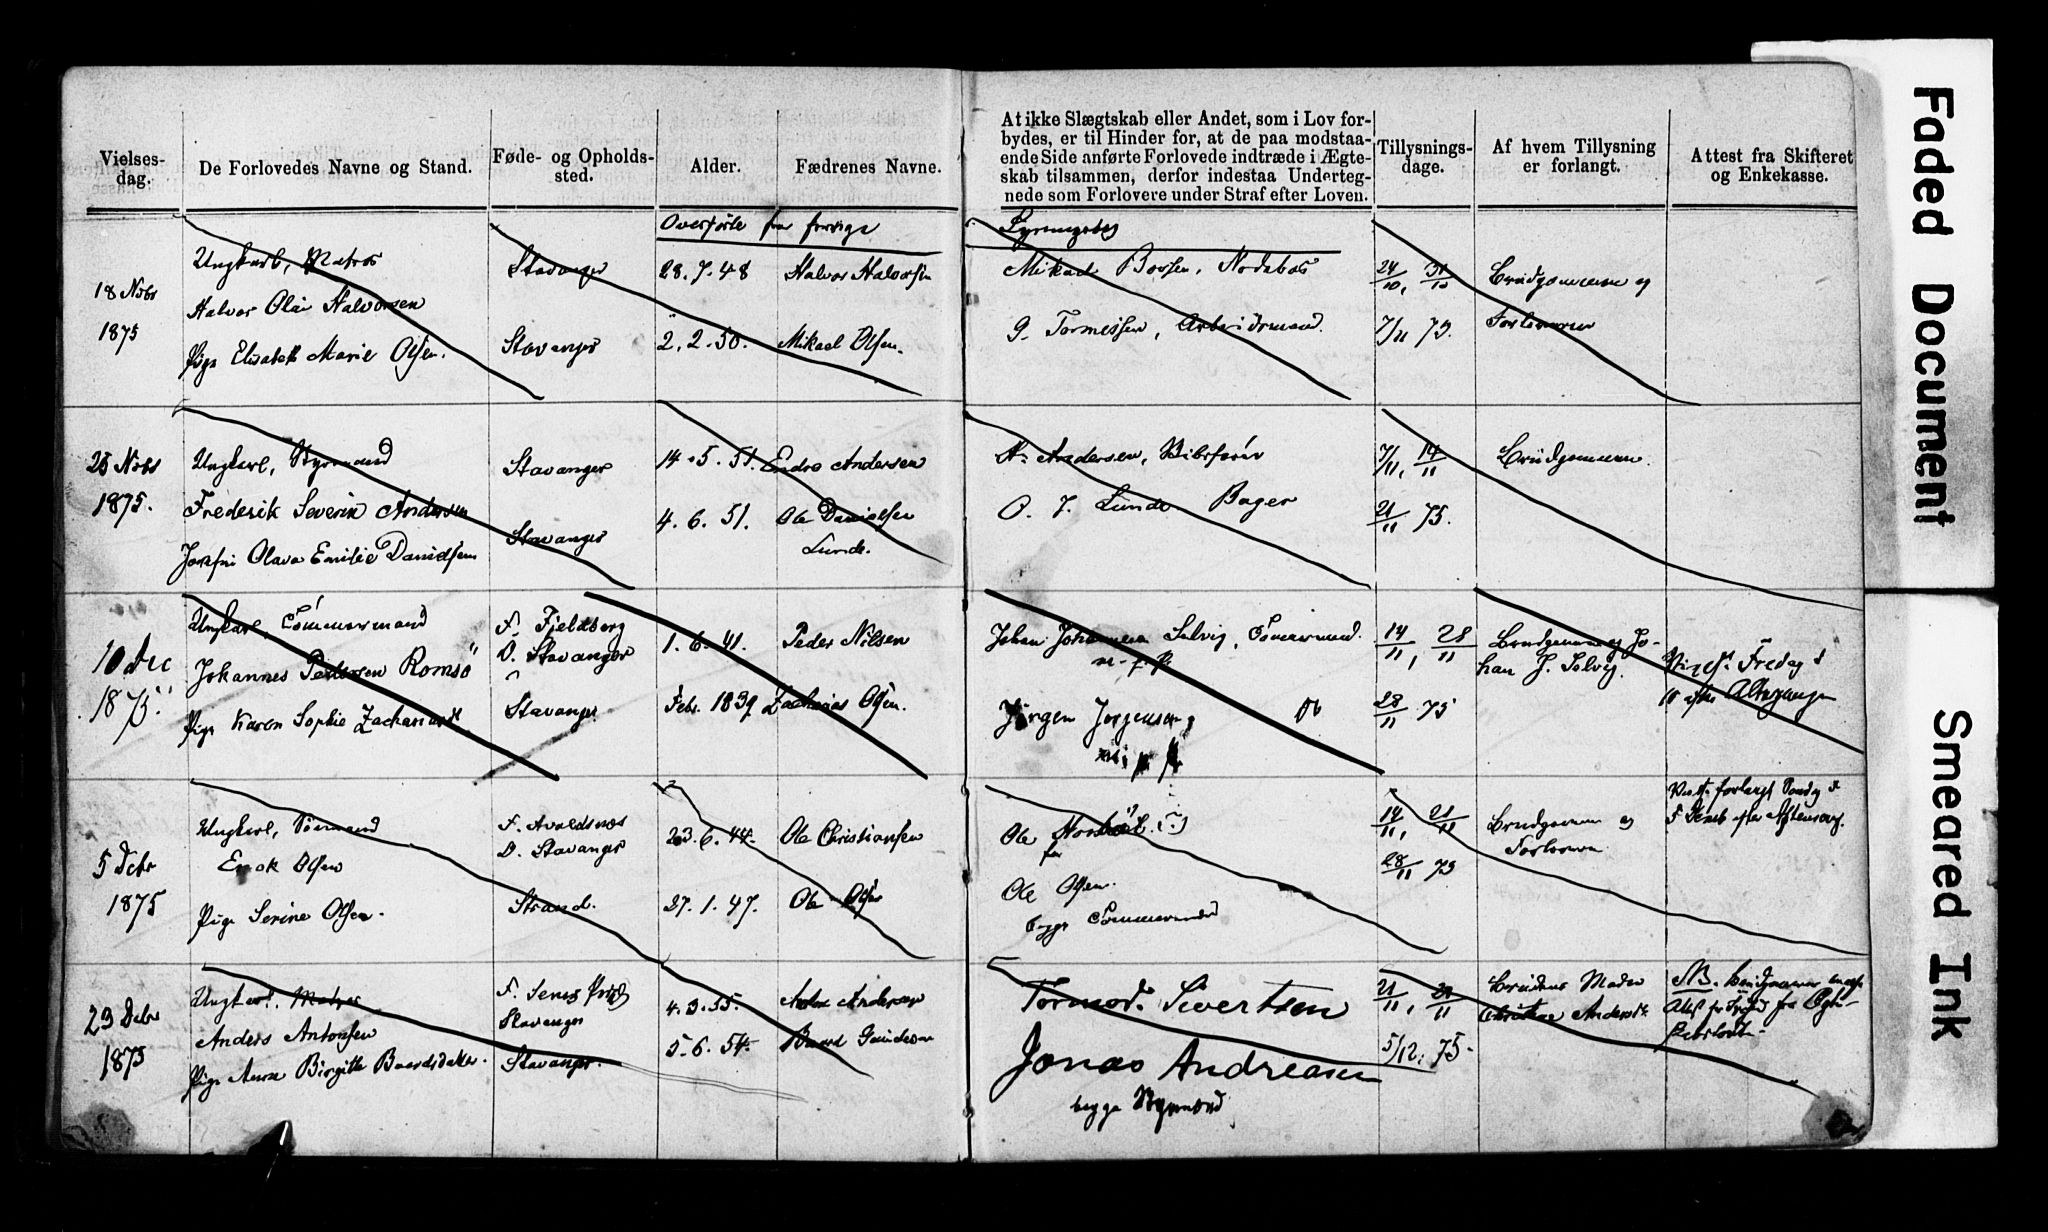 Vielses-
dag.
De Forlovedes Navne og Stand.
Føde- og Opholds-
sted.
Alder.
Fædrenes Navne.
At ikke Slægtskab eller Andet, som i Lov for-
bydes, er til Hinder for, at de paa modstaa-
ende Side anførte Forlovede indtræde i Ægte-
skab tilsammen, derfor indestaa Underteg-
nede som Forlovere under Straf efter Loven.
Tillysnings-
dage.
Af hvem Tillysning
er forlangt.
Attest fra Skifteret
og Enkekasse.
Overførte fra forrige
Lysningsbog
18 Novbr
1875
Ungkarl, Matros
Halvor Olai Halvorsen
Pige Elisabeth Marie Olsen.
Stavanger
Stavanger
28. 7. 48
2. 2. 50.
Halvor Halvorsen
Mikael Olsen.
Mikael
G. Tormessen, Arbeidsmand.
24/10, 31/10
7/11 75.
Brudgommen og
Forloveren
25 Novbr
1875.
Ungkarl, Styrmand
Frederik Severin Andersen
Josefine Olava Emilie Danielsen
Stavanger
Stavanger
14. 5. 51.
4. 6. 51.
Endre Andersen
Ole Danielsen
Lunde.
A. Andersen,
O. J. Lunde Bager
7/11, 14/11
21/11 75.
Brudgommen.
10 Dec
1875.
Ungkarl, Tømmermand
Johannes Pedersen Romsø
Pige Karen Sophie Zachariasd.
F. Fjeldberg
O. Stavanger
Stavanger
1. 6. 41.
Febr. 1839
Peder Nilsen
Zacharias Olsen.
Johan Johannesen Selvig, Tømmermand.
m. f. P.
Jørgen Jørgensen
m. f. P.
14/11, 28/11
28/11 75
Brudgommen og Jo-
han J. Selvig.
Vies Fredag d
10 efter Altergangen
5 Debr
1875
Ungkarl, Sømand
Enok Olsen
Pige Serine Olsen.
F. Avaldsnes
O. Stavanger
Strand.
23. 6. 44.
27. 1. 47.
Ole Christiansen
Ole Olsen
Ole
Ole Olsen.
begge Tømmermænd
14/11, 21/11
28/11 75
Brudgommen og
Forloveren
forlangt Søndag d
5 Decb efter Aftensang.
23 Debr
1875
Ungkarl, Matros
Anders Antonsen
Pige Anna Birgitte Baardsdatter.
Stavanger
Stavanger.
4. 3. 55.
5. 6. 54.
Anton Andersen
Baard Gundersen
Tormod Sivertsen
Jonas Andreasen
begge Styrmænd
21/11, 28/11
5/12. 75.
Brudens Moder
NB. Brudgommen